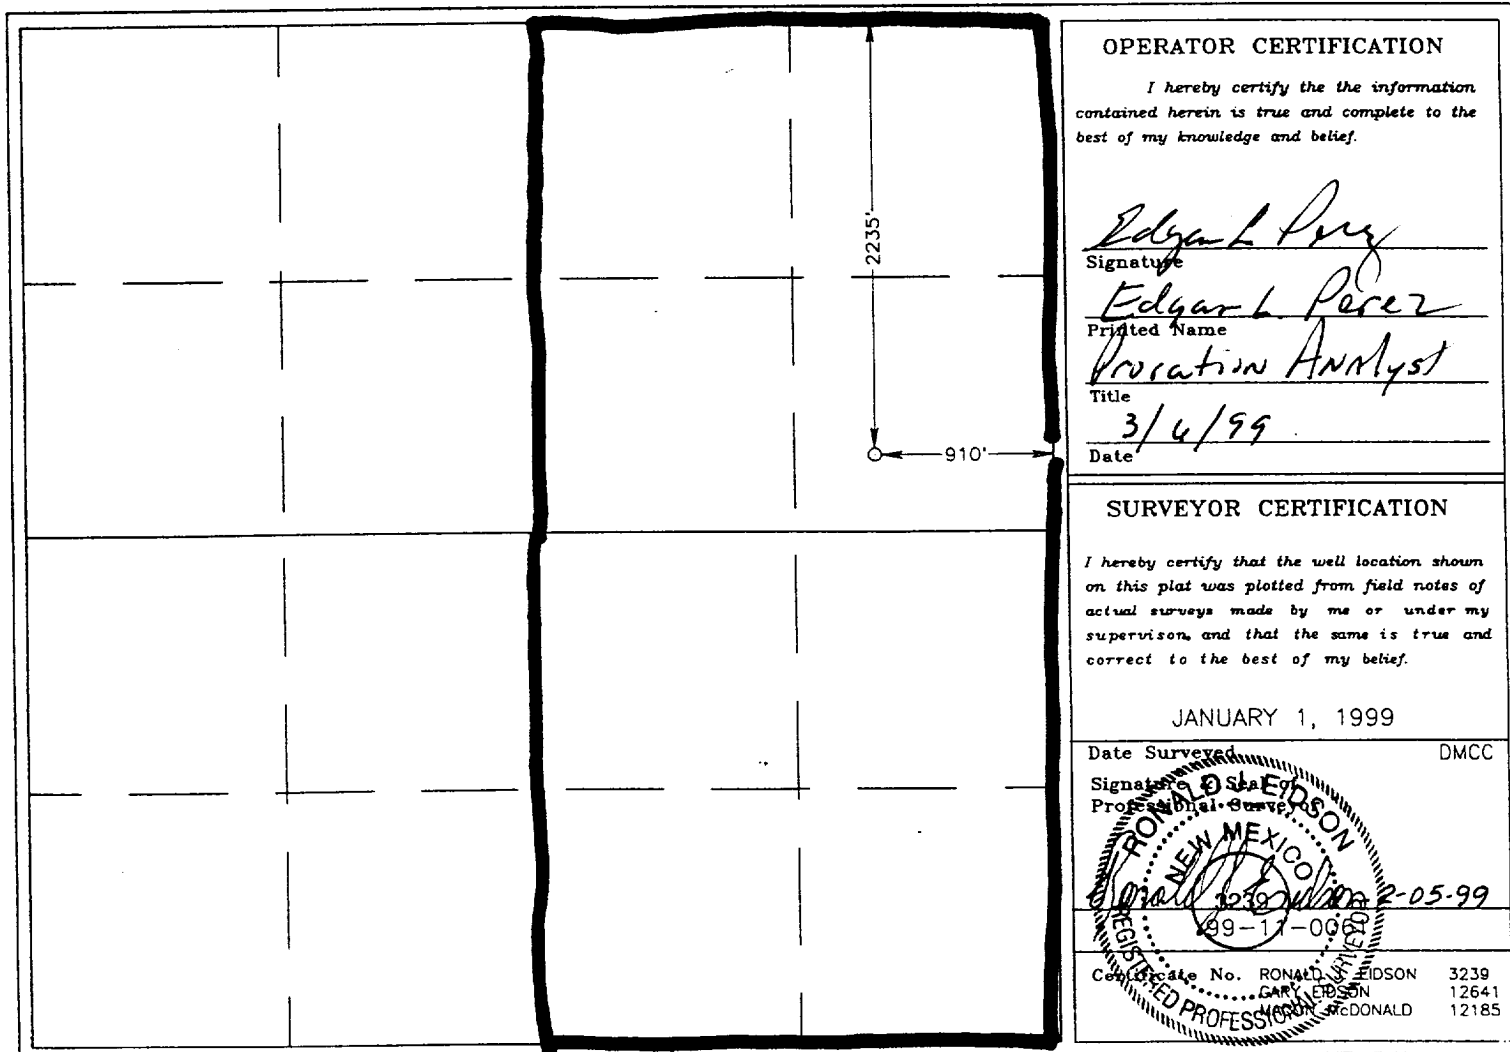 2235'
910'
OPERATOR CERTIFICATION
I hereby certify the the information
contained herein is true and complete to the
best of my knowledge and belief.
Edgar L Perez
Signature
Edgar L. Perez
Printed Name
Proration Analyst
Title
3/6/99
Date
SURVEYOR CERTIFICATION
I hereby certify that the well location shown
on this plat was plotted from field notes of
actual surveys made by me or under my
supervison, and that the same is true and
correct to the best of my belief.
JANUARY 1, 1999
Date Surveyed DMCC
Signature & Seal of
Professional Surveyor
RONALD J. EIDSON
NEW MEXICO
3239
REGISTERED PROFESSIONAL SURVEYOR
2-05-99
99-11-0061
Certificate No. RONALD J. EIDSON 3239
GARY EIDSON 12641
MACON McDONALD 12185